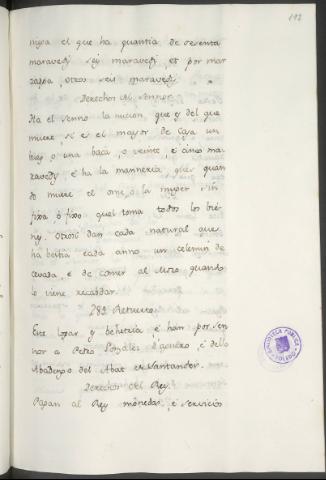 112
nyra el que ha quantia de sesenta
maravedi seis maravedi, et por mar
zazga, otros seis maravedi.
Derechos del Sennor
Ha el senno la nucion, que es del que
muere, si es el mayor de casa un
buey o una baca, o veinte, e cinco ma-
ravedis, e ha la manneria, que quan
do muere el ome o la muger sin
fixa o fixo quel toma todos los bie-
nes. Otrosi dan cada natural que
ha bestia cada anno un celemin de
cevada, e de comer al Mozo quando
lo viene recabdar.
282 Retuerto.
Este logar es behetria, e han por sen
nor a Petro Gonzales Aguero, e dello
Abadengo del Abat de Santander.
Derechos del Rey.
Pagan al Rey monedas, e servicios
BIBLIOTECA PUBLICA